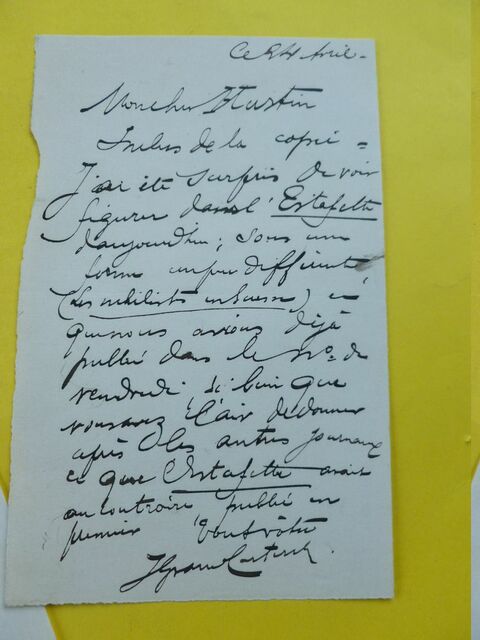 Ce 24 Avril -
Mon cher Hustin
Inclus de la copie =
J'ai été surpris de voir
figurer dans l'Estafette
d'aujourdhui, sous une
forme un peu différente
(Les nihilistes en Suisse) ce
que nous avions déjà
publié dans le No. de
vendredi, si bien que
vous avez l'air de donner
après les autres journaux
ce que l'Estafette avait
au contraire publié en
premier Tout vôtre